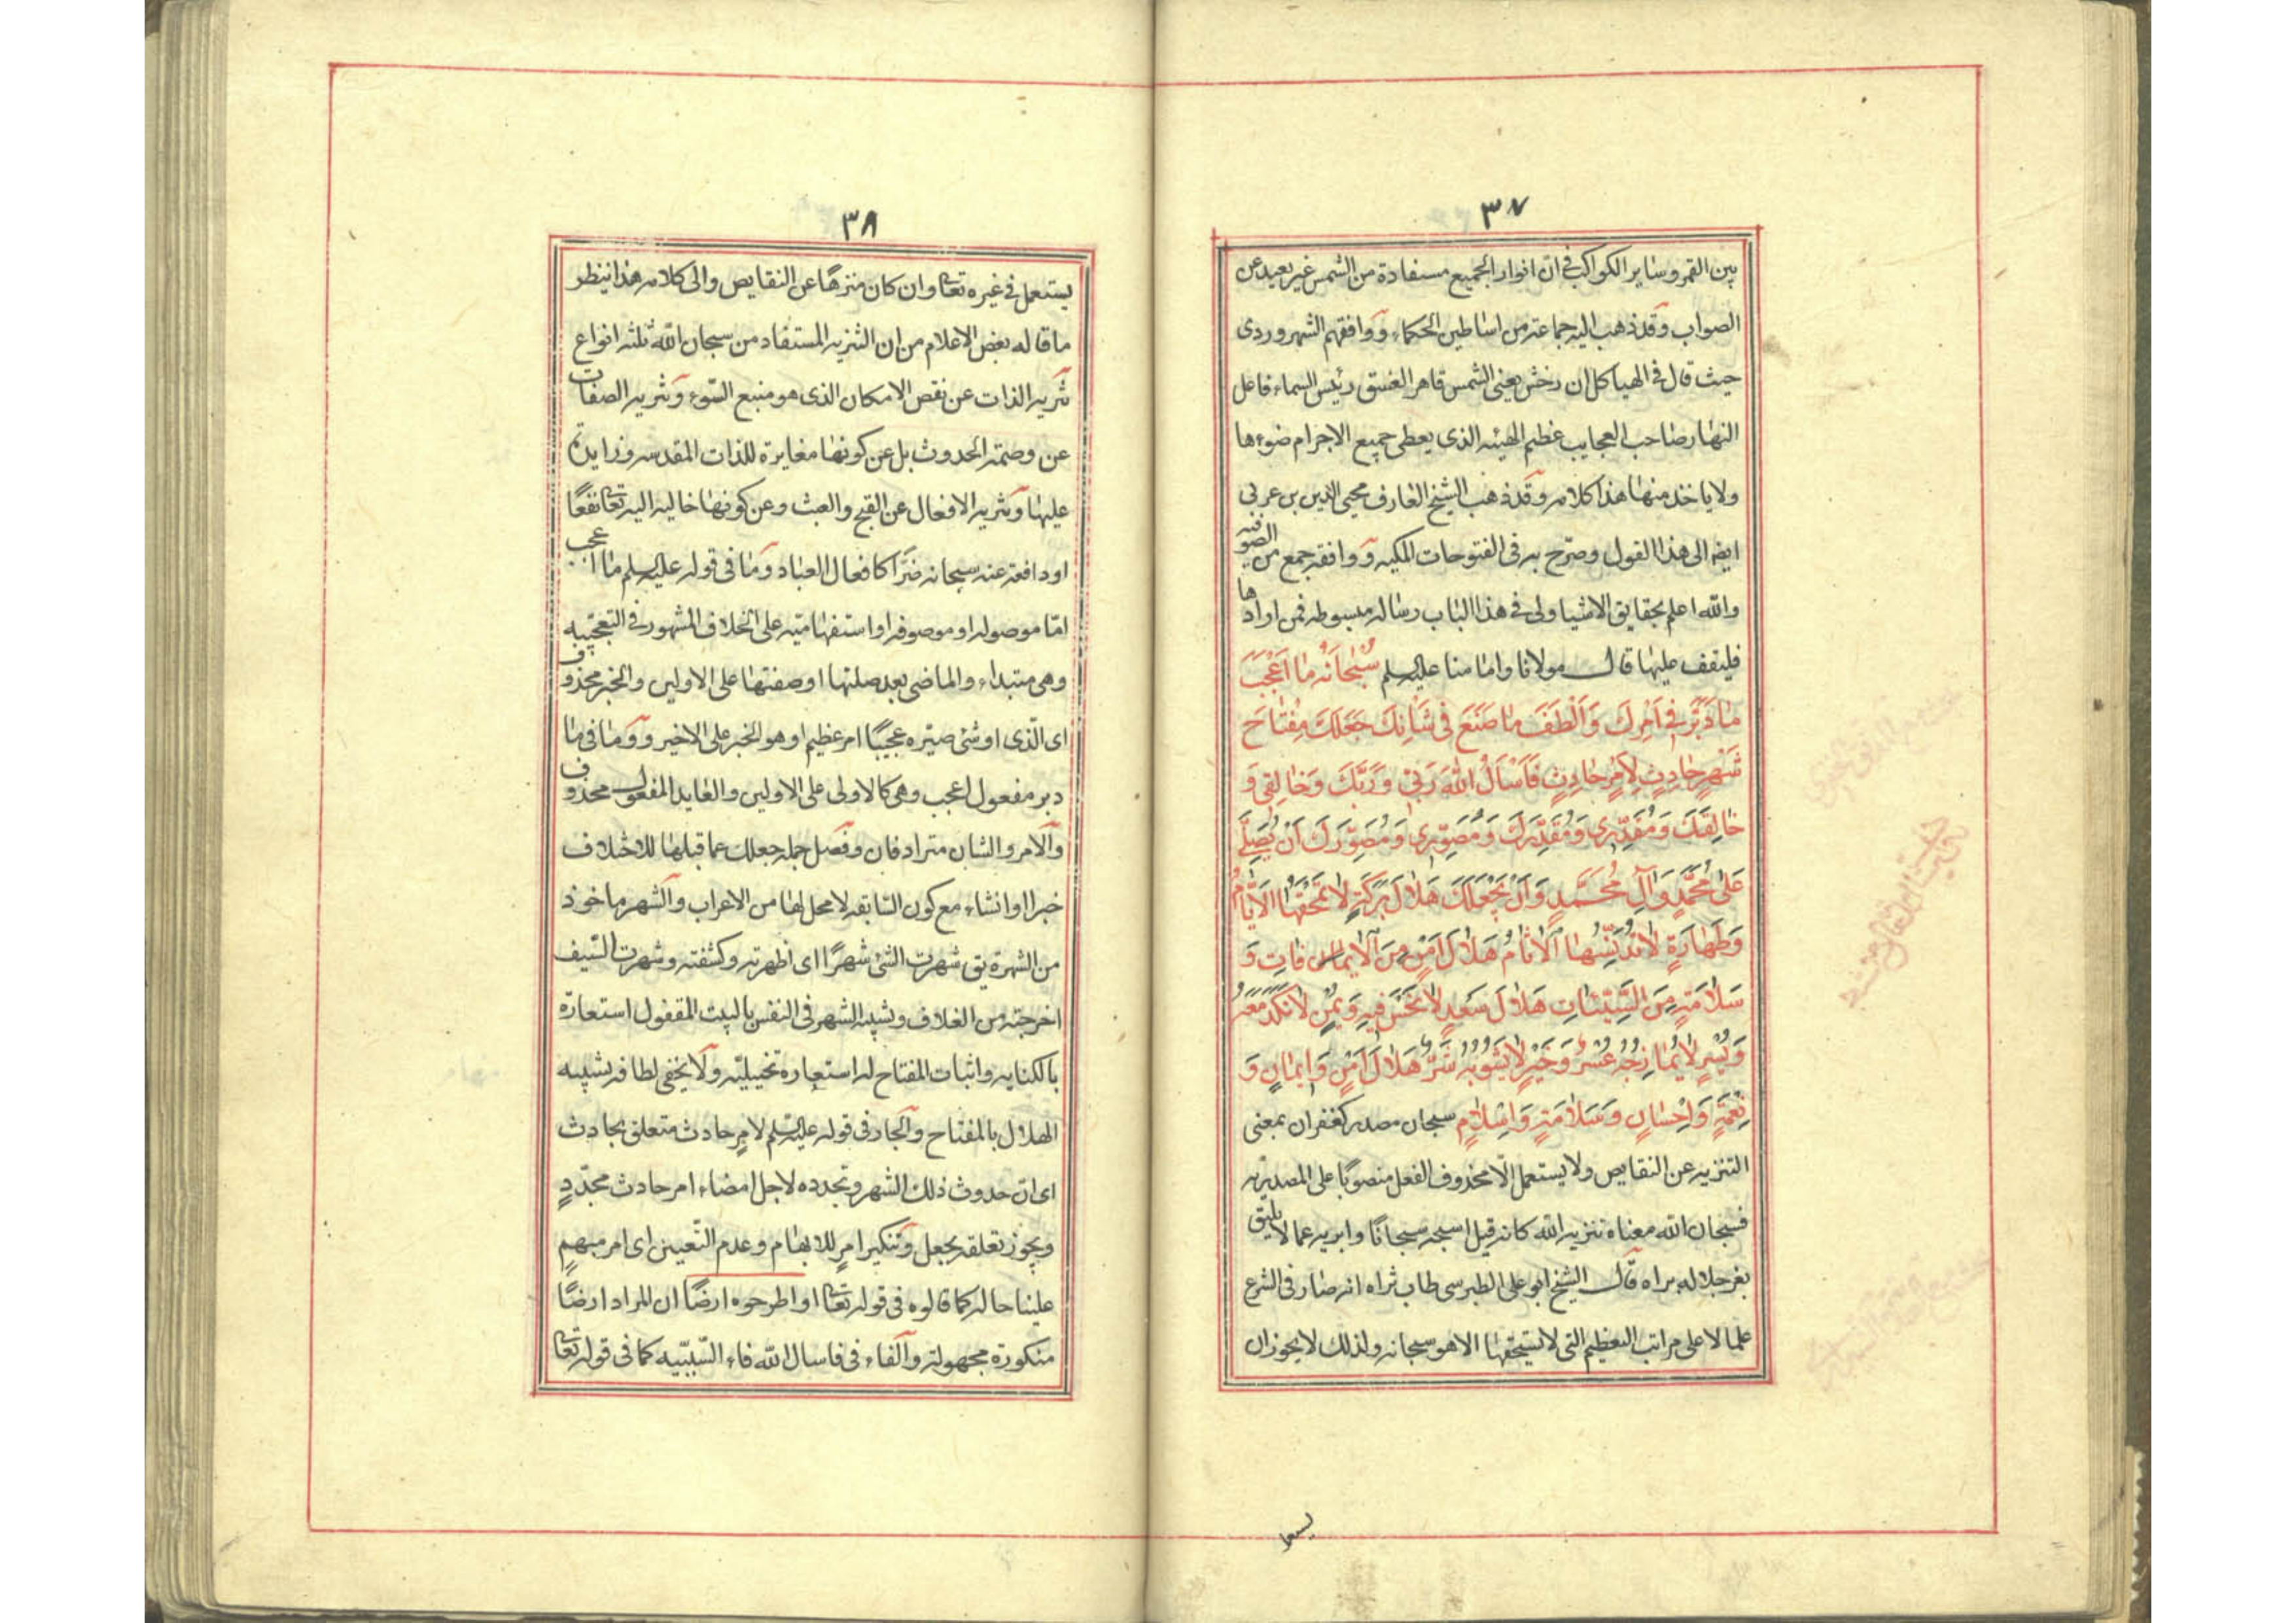 ٣٧
بين القمر وساير الكواكب في ان انوار الجميع مستفادة من الشمس غير بعيد عن
الصواب وقد ذهب اليه جماعة من اساطين الحكماء ووافقهم الشهروردى
حيث قال في الهياكل ان رخش يعنى الشمس قاهر الغسق رئيس السماء فاعل
النهار صاحب العجايب عظيم الهيئه الذى يعطى جميع الاجرام ضوءها
ولا ياخذ منها هذا كلامه وقد ذهب الشيخ العارف محيى الدين بن عربى
ايضا الى هذا القول وصرّح به في الفتوحات المكيه ووافقه جمع من الصوفيه
والله اعلم بحقايق الاشيا ولى في هذا الباب رساله مبسوطه فمن ارادها
فليقف عليها قال مولانا وامامنا عليه السلم سُبْحَانَهُ مَا اَعْجَبَ
مَا دَبَّرَ فِي اَمْرِكَ وَاَلْطَفَ مَا صَنَعَ فِي شَاْنِكَ جَعَلَكَ مِفْتَاحَ
شَهْرٍ حَادِثٍ لِاَمْرٍ حَادِثٍ فَاَسْاَلُ اللهَ رَبِّي وَرَبَّكَ وَخَالِقِي وَ
خَالِقَكَ وَمُقَدِّرِي وَمُقَدِّرَكَ وَمُصَوِّرِي وَمُصَوِّرَكَ اَنْ يُصَلِّيَ
عَلَى مُحَمَّدٍ وَآلِ مُحَمَّدٍ وَاَنْ يَجْعَلَكَ هِلَالَ بَرَكَةٍ لَا تَمْحَقُهَا الْاَيَّامُ
وَطَهَارَةٍ لَا تُدَنِّسُهَا الْاٰثَامُ هِلَالَ اَمْنٍ مِنَ الْاٰفَاتِ وَ
سَلَامَةٍ مِنَ السَّيِّئَاتِ هِلَالَ سَعْدٍ لَا نَحْسَ فِيهِ وَيُمْنٍ لَا نَكَدَ مَعَهُ
وَيُسْرٍ لَا يُمَازِجُهُ عُسْرٌ وَخَيْرٍ لَا يَشُوبُهُ شَرٌّ هِلَالَ اَمْنٍ وَاِيمَانٍ وَ
نِعْمَةٍ وَاِحْسَانٍ وَسَلَامَةٍ وَاِسْلَامٍ سبحان مصدر كغفران بمعنى
التنزيه عن النقايص ولا يستعمل الّا محذوف الفعل منصوبًا على المصدريّه
فسبحان الله معناه تنزيه الله كانه قيل اسبحه سبحانًا وابريه عما لا يليق
بعز جلاله براه قال الشيخ ابو على الطبرسى طاب ثراه انه صار في الشرع
علما لاعلى مراتب التعظيم التى لا يستحقها الا هو سبحانه ولذلك لا يجوز ان
٣٨
يستعمل في غيره تعالى وان كان منزهًا عن النقايص والى كلامه هذا ينظر
ما قاله بعض الاعلام من ان التنزيه المستفاد من سبحان الله ثلثه انواع
تنزيه الذات عن نقص الامكان الذى هو منبع السّوء وتنزيه الصفات
عن وصمة الحدوث بل عن كونها مغايرة للذات المقدسه وزايدة
عليها وتنزيه الافعال عن القبح والعبث وعن كونها جاليه اليه تعالى نفعًا
او دافعة عنه سبحانه ضرًّا كافعال العباد وما في قوله عليه السلم ما اعجب
امّا موصوله او موصوفه او استفهاميّه على الخلاف المشهور في التعجبيّه
وهى مبتداء والماضى بعد صلتها او صفتها على الاولين والخبر محذوف
اى الّذى او شئ صيّره عجيبًا امر عظيم او هو الخبر على الاخير وما في ما
دبر مفعول اعجب وهى كالاولى على الاولين والعايد المفعول محذوف
والامر والشان مترادفان وفصل جمله جعلك عما قبلها للاختلاف
خبرا وانشاء مع كون السّابقه لا محل لها من الاعراب والشهر ماخوذ
من الشهرة يق شهرت الشئ شهرًا اى اظهرته وكشفته وشهرت السّيف
اخرجته من الغلاف وتشبيه الشهر في النفس بالبيت المقفول استعارة
بالكنايه واثبات المفتاح له استعارة تخييليّه ولا يخفى لطافة تشبيه
الهلال بالمفتاح والجار في قوله عليه السلم لامرٍ حادث متعلق بحادث
اى ان حدوث ذلك الشهر وتجدده لاجل امضاء امر حادث مجدّدٍ
ويجوز تعلقه بجعل وتنكير امرٍ للابهام وعدم التّعيين اى امر مبهمٍ
علينا حاله كما قالوه في قوله تعالى او اطرحوه ارضًا ان المراد ارضًا
منكورة مجهولة والفاء في فاسال الله فاء السّببيّه كما في قوله تعالى